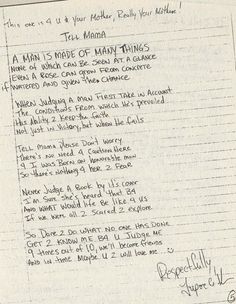 This one is 4 U & Your Mother, Really Your Mother!
Tell Mama
A MAN IS MADE OF MANY THINGS
None of which CAN Be SEEN AT A GLANCE
EVEN A ROSE CAN OPEN FROM CONCRETE
if WATERED AND given THEN CHANCE
When Judging A MAN First Take in Account
The CONDITIONS FROM WHICH He's PREVAILED
His Ability 2 Keep the Faith
Not Just in Victory, but when He Fails
Tell MAMA Please Don't Worry
There's NO NEED 4 CAUTION HERE
4 I WAS BORN AN honorable MAN
So there's NOTHING 4 her 2 Fear
Never Judge A Book by it's COVER
I'm Sure She's heard That B4
AND WHAT Would life Be like 4 US
If we were All 2 SCARED 2 explore
So DARE 2 Do WHAT NO ONE HAS DONE
Get 2 KNOW ME B4 U Judge ME
9 times out of 10, we'll become friends
AND in time Maybe U 2 will love me...
Respectfully